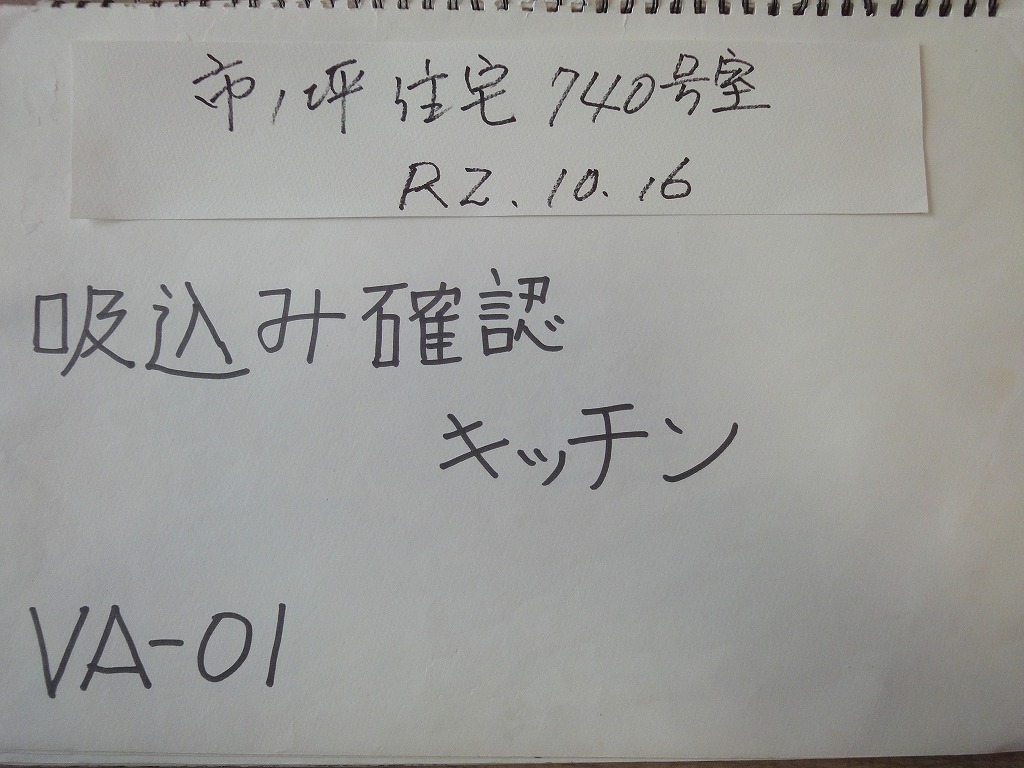 市ノ坪住宅 740号室
R2.10.16
吸込み確認
キッチン
VA-01